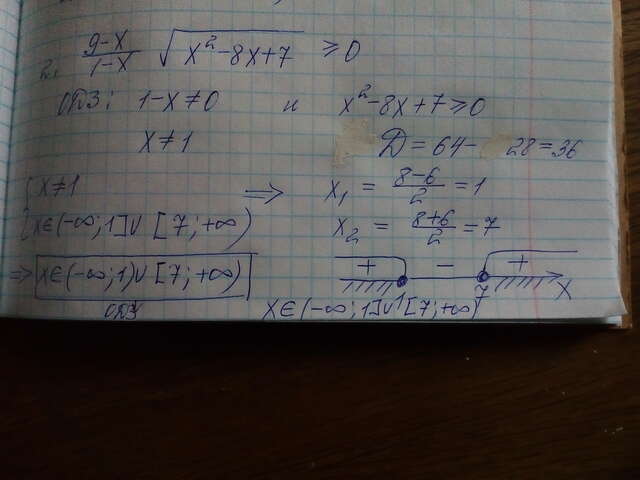 2. (9-x)/(1-x) √(x²-8x+7) ≥ 0
ОДЗ: 1-x≠0 и x²-8x+7≥0
x≠1 D=64-28=36
{ x≠1 ⇒ x₁ = (8-6)/2 = 1
{ x∈(-∞;1]∪[7;+∞) x₂ = (8+6)/2 = 7
+ - +
⇒ x∈(-∞;1)∪[7;+∞) 1 7 x
ОДЗ x∈(-∞;1]∪[7;+∞)